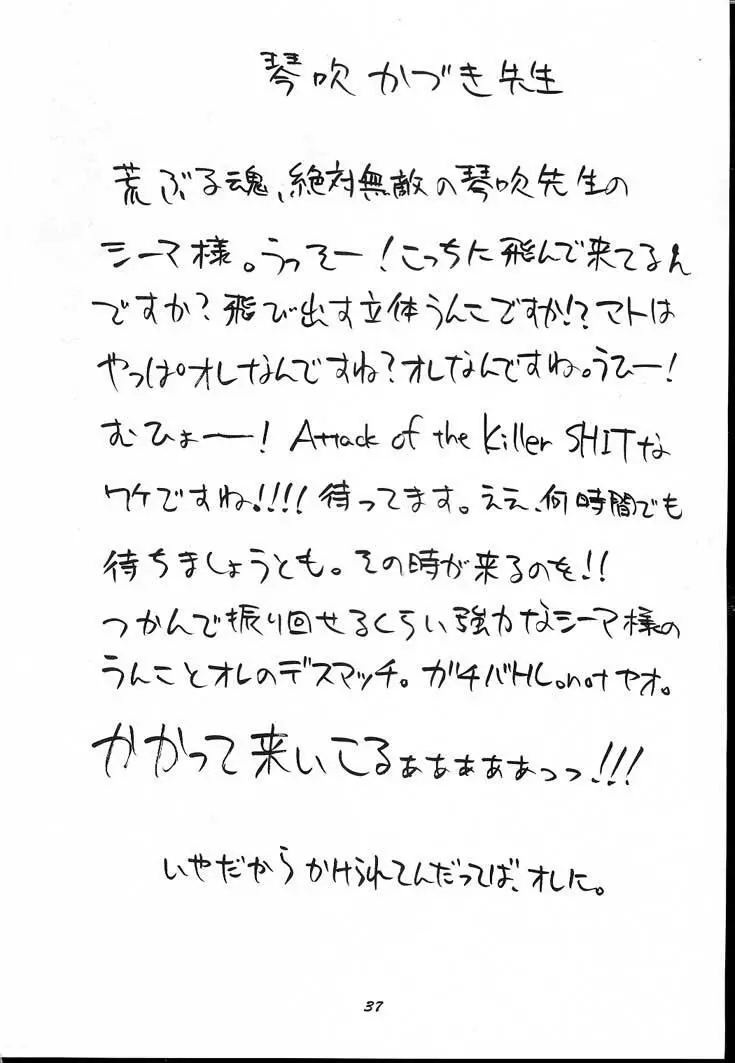 琴吹かづき先生
荒ぶる魂、絶対無敵の琴吹先生の
シーマ様。うっそー！こっちに飛んで来てるん
ですか？飛び出す立体うんこですか!?マトは
やっぱオレなんですね？オレなんですね。うひー！
むひょーー！Attack of the Killer SHITな
ワケですね!!!!待ってます。ええ、何時間でも
待ちましょうとも。その時が来るのを!!
つかんで振り回せるくらい強力なシーマ様の
うんことオレのデスマッチ。ガチバトル。not ヤオ。
かかって来いこるぁぁぁぁぁっっ!!!
いやだからかけられてんだってば、オレに。
37